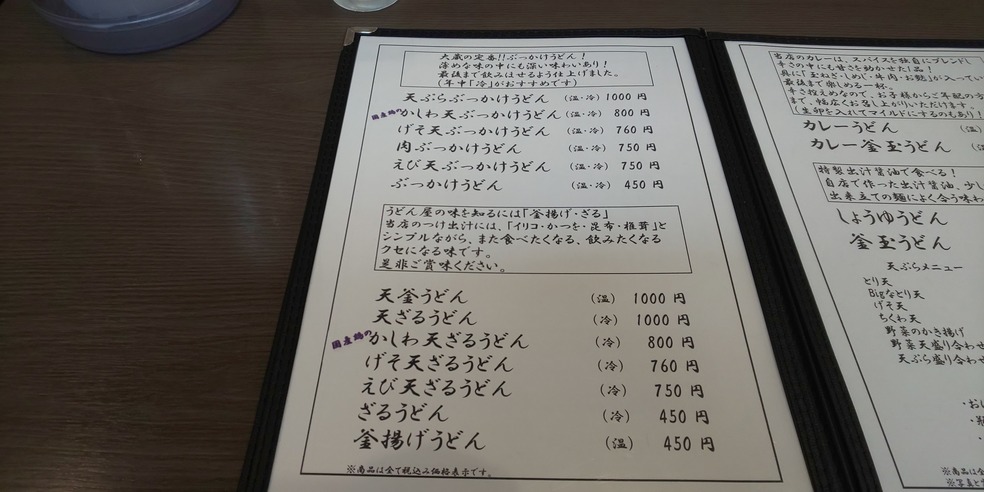 大蔵の定番!!ぶっかけうどん!
薄めな味の中にも深い味わいあり!
最後まで飲みほせるよう仕上げました。
(年中「冷」がおすすめです)
天ぷらぶっかけうどん (温・冷) 1000 円
国産鶏の かしわ天ぶっかけうどん (温・冷) 800 円
げそ天ぶっかけうどん (温・冷) 760 円
肉ぶっかけうどん (温・冷) 750 円
えび天ぶっかけうどん (温・冷) 750 円
ぶっかけうどん (温・冷) 450 円
うどん屋の味を知るには「釜揚げ・ざる」
当店のつけ出汁には、「イリコ・かつを・昆布・椎茸」と
シンプルながら、また食べたくなる、飲みたくなる
クセになる味です。
是非ご賞味ください。
天釜うどん (温) 1000 円
天ざるうどん (冷) 1000 円
国産鶏の かしわ天ざるうどん (冷) 800 円
げそ天ざるうどん (冷) 760 円
えび天ざるうどん (冷) 750 円
ざるうどん (冷) 450 円
釜揚げうどん (温) 450 円
※商品は全て税込み価格表示です。
当店のカレーは、スパイスを独自にブレンドし
辛さの中にも甘さを効かせた1品!
具に「玉ねぎ・しめじ・牛肉・お麩」が入ってい
最後まで楽しめる一杯。
辛さ控えめなので、お子様からご年配の方
まで、幅広くお召し上がりいただけます。
(生卵を入れてマイルドにするのもあり!
カレーうどん (温)
カレー釜玉うどん
特製出汁醤油で食べる!
自店で作った出汁醤油、少し
出来立ての麺によく合う味わ
しょうゆうどん
釜玉うどん
天ぷらメニュー
とり天
Bigなとり天
げそ天
ちくわ天
野菜のかき揚げ
野菜天盛り合わせ
天ぷら盛り合わせ
・おに
※商品は全
※写真と